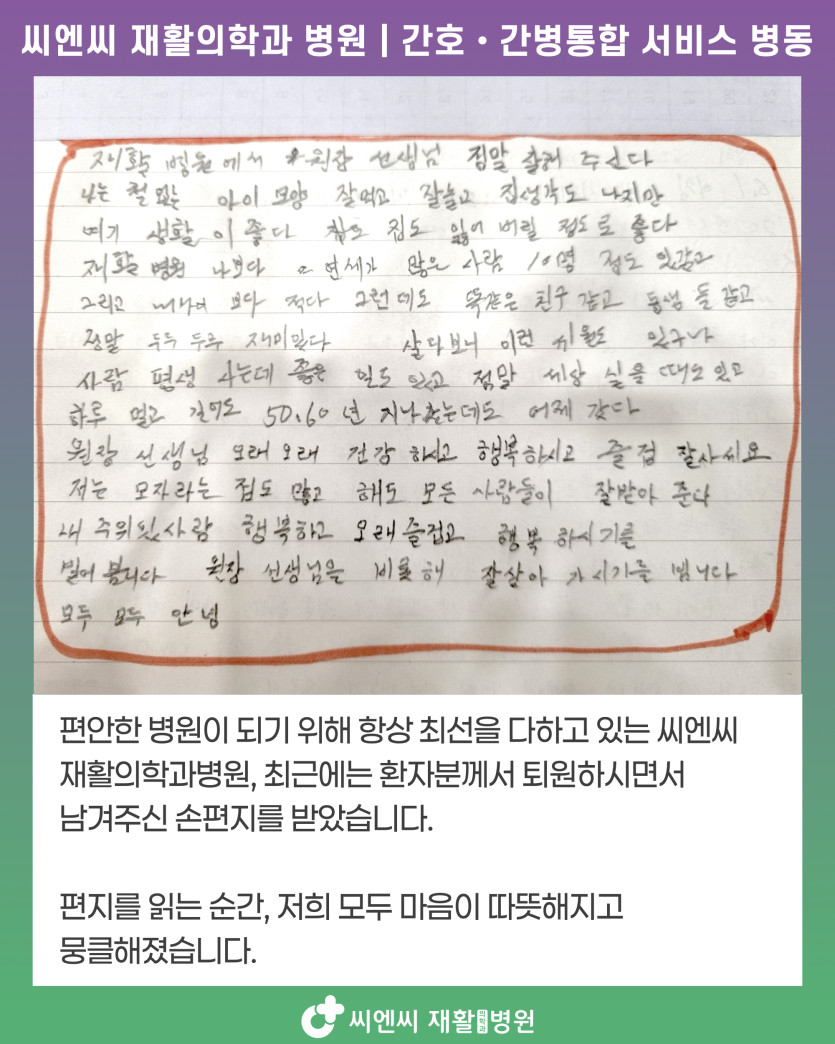 씨엔씨 재활의학과 병원 | 간호·간병통합 서비스 병동
재활 병원에서 원장 선생님 정말 잘해 주신다
나는 철 없는 아이 모양 잘먹고 잘놀고 집생각도 나지만
여기 생활이 좋다 집도 잃어 버릴 정도로 좋다
재활 병원 나보다 연세가 많은 사람 10명 정도 있갔고
그리고 보다 적다 그런데도 똑같은 친구 같고 동생 들 같고
정말 두루 두루 재미있다 살다보니 이런 있구나
사람 평생 사는데 좋은 일도 있고 정말 세상 싫을 때도 있고
하루 멀고 길어도 50.60년 지나 는데도 어제 갔다
원장 선생님 오래 오래 건강 하시고 행복하시고 즐겁 잘사세요
저는 모자라는 점도 많고 해도 모든 사람들이 잘받아 준다
내 주위 사람 행복하고 오래 즐겁고 행복 하시기를
빌어 봅니다 원장 선생님을 비롯해 잘살아 가시기를 빕니다
모두 모두 안녕
편안한 병원이 되기 위해 항상 최선을 다하고 있는 씨엔씨
재활의학과병원, 최근에는 환자분께서 퇴원하시면서
남겨주신 손편지를 받았습니다.
편지를 읽는 순간, 저희 모두 마음이 따뜻해지고
뭉클해졌습니다.
씨엔씨 재활의학과병원